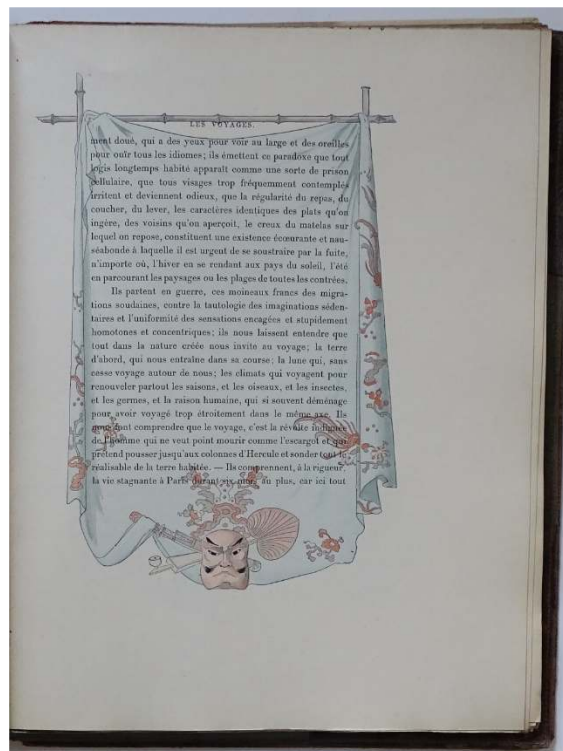 LES VOYAGES.
ment doué, qui a des yeux pour voir au large et des oreilles
pour ouïr tous les idiomes; ils émettent ce paradoxe que tout
logis longtemps habité apparaît comme une sorte de prison
cellulaire, que tous visages trop fréquemment contemplés
irritent et deviennent odieux, que la régularité du repas, du
coucher, du lever, les caractères identiques des plats qu'on
ingère, des voisins qu'on aperçoit, le creux du matelas sur
lequel on repose, constituent une existence écœurante et nau-
séabonde à laquelle il est urgent de se soustraire par la fuite,
n'importe où, l'hiver en se rendant aux pays du soleil, l'été
en parcourant les paysages ou les plages de toutes les contrées.
Ils partent en guerre, ces moineaux francs des migra-
tions soudaines, contre la tautologie des imaginations séden-
taires et l'uniformité des sensations encagées et stupidement
homotones et concentriques; ils nous laissent entendre que
tout dans la nature créée nous invite au voyage; la terre
d'abord, qui nous entraîne dans sa course; la lune qui, sans
cesse voyage autour de nous; les climats qui voyagent pour
renouveler partout les saisons, et les oiseaux, et les insectes,
et les germes, et la raison humaine, qui si souvent déménage
pour avoir voyagé trop étroitement dans le même axe. Ils
nous font comprendre que le voyage, c'est la révolte indignée
de l'homme qui ne veut point mourir comme l'escargot et qui
prétend pousser jusqu'aux colonnes d'Hercule et sonder tout le
réalisable de la terre habitée. — Ils comprennent, à la rigueur,
la vie stagnante à Paris durant six mois au plus, car ici tout